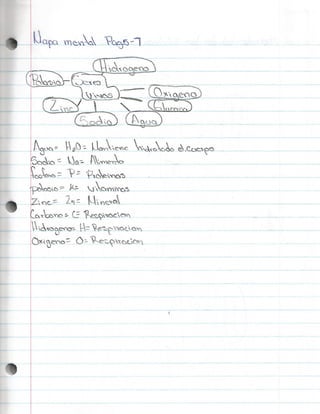 Mapa mental Pag5-7
Hidrogeno
Potasio
Seres
Vivos
Oxigeno
Zinc
Sodio
Agua
Agua= H2O= Mantiene hidratado el.cuerpo
Sodio = Na= Alimento
fosforo = P= Proteinas
potasio= K= vitaminas
Zinc= Zn= Mineral
Carbono= C= Respiracion
Hidrogeno= H= Respiracion
Oxigeno= O= Respiracion